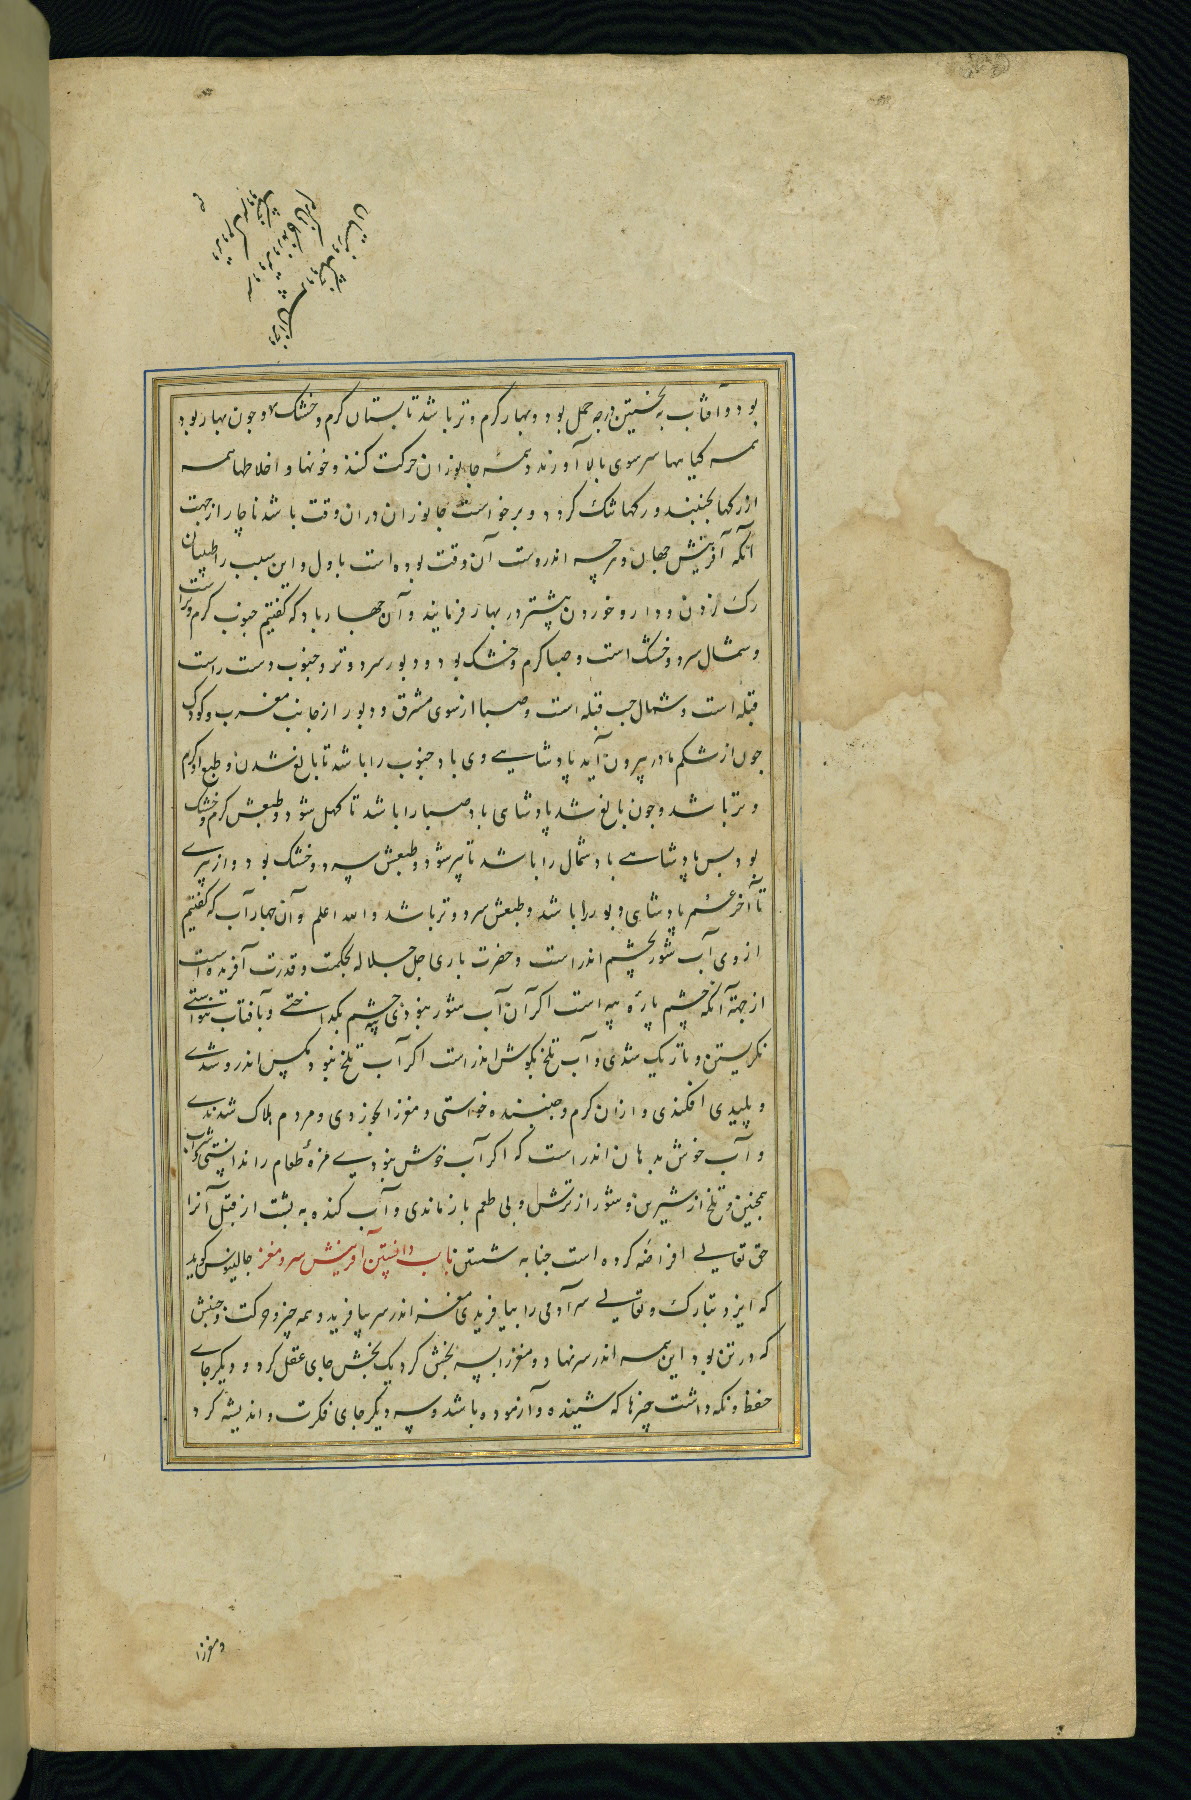 بود و آفتاب به نخستین درجه حمل بود و بهار کرم و تر باشد تابستان کرم و خشک و جون بهار بود
همه کیاهها سر سوی بالا آورند و همه جانوران حرکت کنند و خونها و اخلاطها همه
از رکها بجنبند و رکها تنک کردد و برخواست جانوران دران وقت باشد ناچار از جهت
آنکه آفرینش جهان و هرچه اندروست آن وقت بوده است باول و این سبب را طبیبان
رک زدن و دارو خوردن پیشتر در بهار فرمایند و آن چهار باد که کفتیم جنوب کرم و تر است
و شمال سرد و خشک است و صبا کرم و خشک بود و دبور سرد و تر و جنوب دست راست
قبله است و شمال چب قبله است و صبا از سوی مشرق و دبور از جانب مغرب و کودک
جون از شکم مادر بیرون آید پادشاهی وی باد جنوب را باشد تا بالغ شدن و طبع او کرم
و تر باشد و جون بالغ شد پادشاهی باد صبا را باشد تا کهل شود و طبعش کرم و خشک
بود بس پادشاهی باد شمال را باشد تا پیر شود و طبعش سرد و خشک بود و از پیری
تا آخر عمر پادشاهی دبور را باشد و طبعش سرد و تر باشد والله اعلم و آن چهار آب که کفتیم
از وی آب شور بچشم اندر است و حضرت باری جل جلاله بحکمت و قدرت آفریده است
از جهة آنکه چشم پارهٔ پیه است اکر آن آب شور نبودی پیه چشم بکداختی و بآفتاب نتوانستی
نکریستن و تاریک شدی و آب تلخ بکوش اندر است اکر آب تلخ نبودی مکس اندر شدی
و پلیدی افکندی و ازان کرم و جنبنده خواستی و مغز را بخوردی و مردم هلاک شدندی
و آب خوش بدهان اندر است که اکر آب خوش نبودی مزهٔ طعام را ندانستی
همچنین و تلخ از شیرین و شور از ترش و بی طعم باز ماندی و آب کنده به پشت از قبل آنرا
حق تعالی افراضه کرده است جنابه شستن باب دانستن آفرینش سر و مغز جالینوس کوید
که ایزد تبارک و تعالی سر آدمی را بیافریدی مغز اندر سر بیافرید و همه چیز و حرکت و جنبش
که در تن بود این همه اندر سر نهاد و مغز را بسه بخش کرد یک بخش جای عقل کرد و دیکر جای
حفظ و نکه داشت چیزها که شنیده و آزموده باشد و سه دیکر جای فکرت و اندیشه کرد
و مغز را